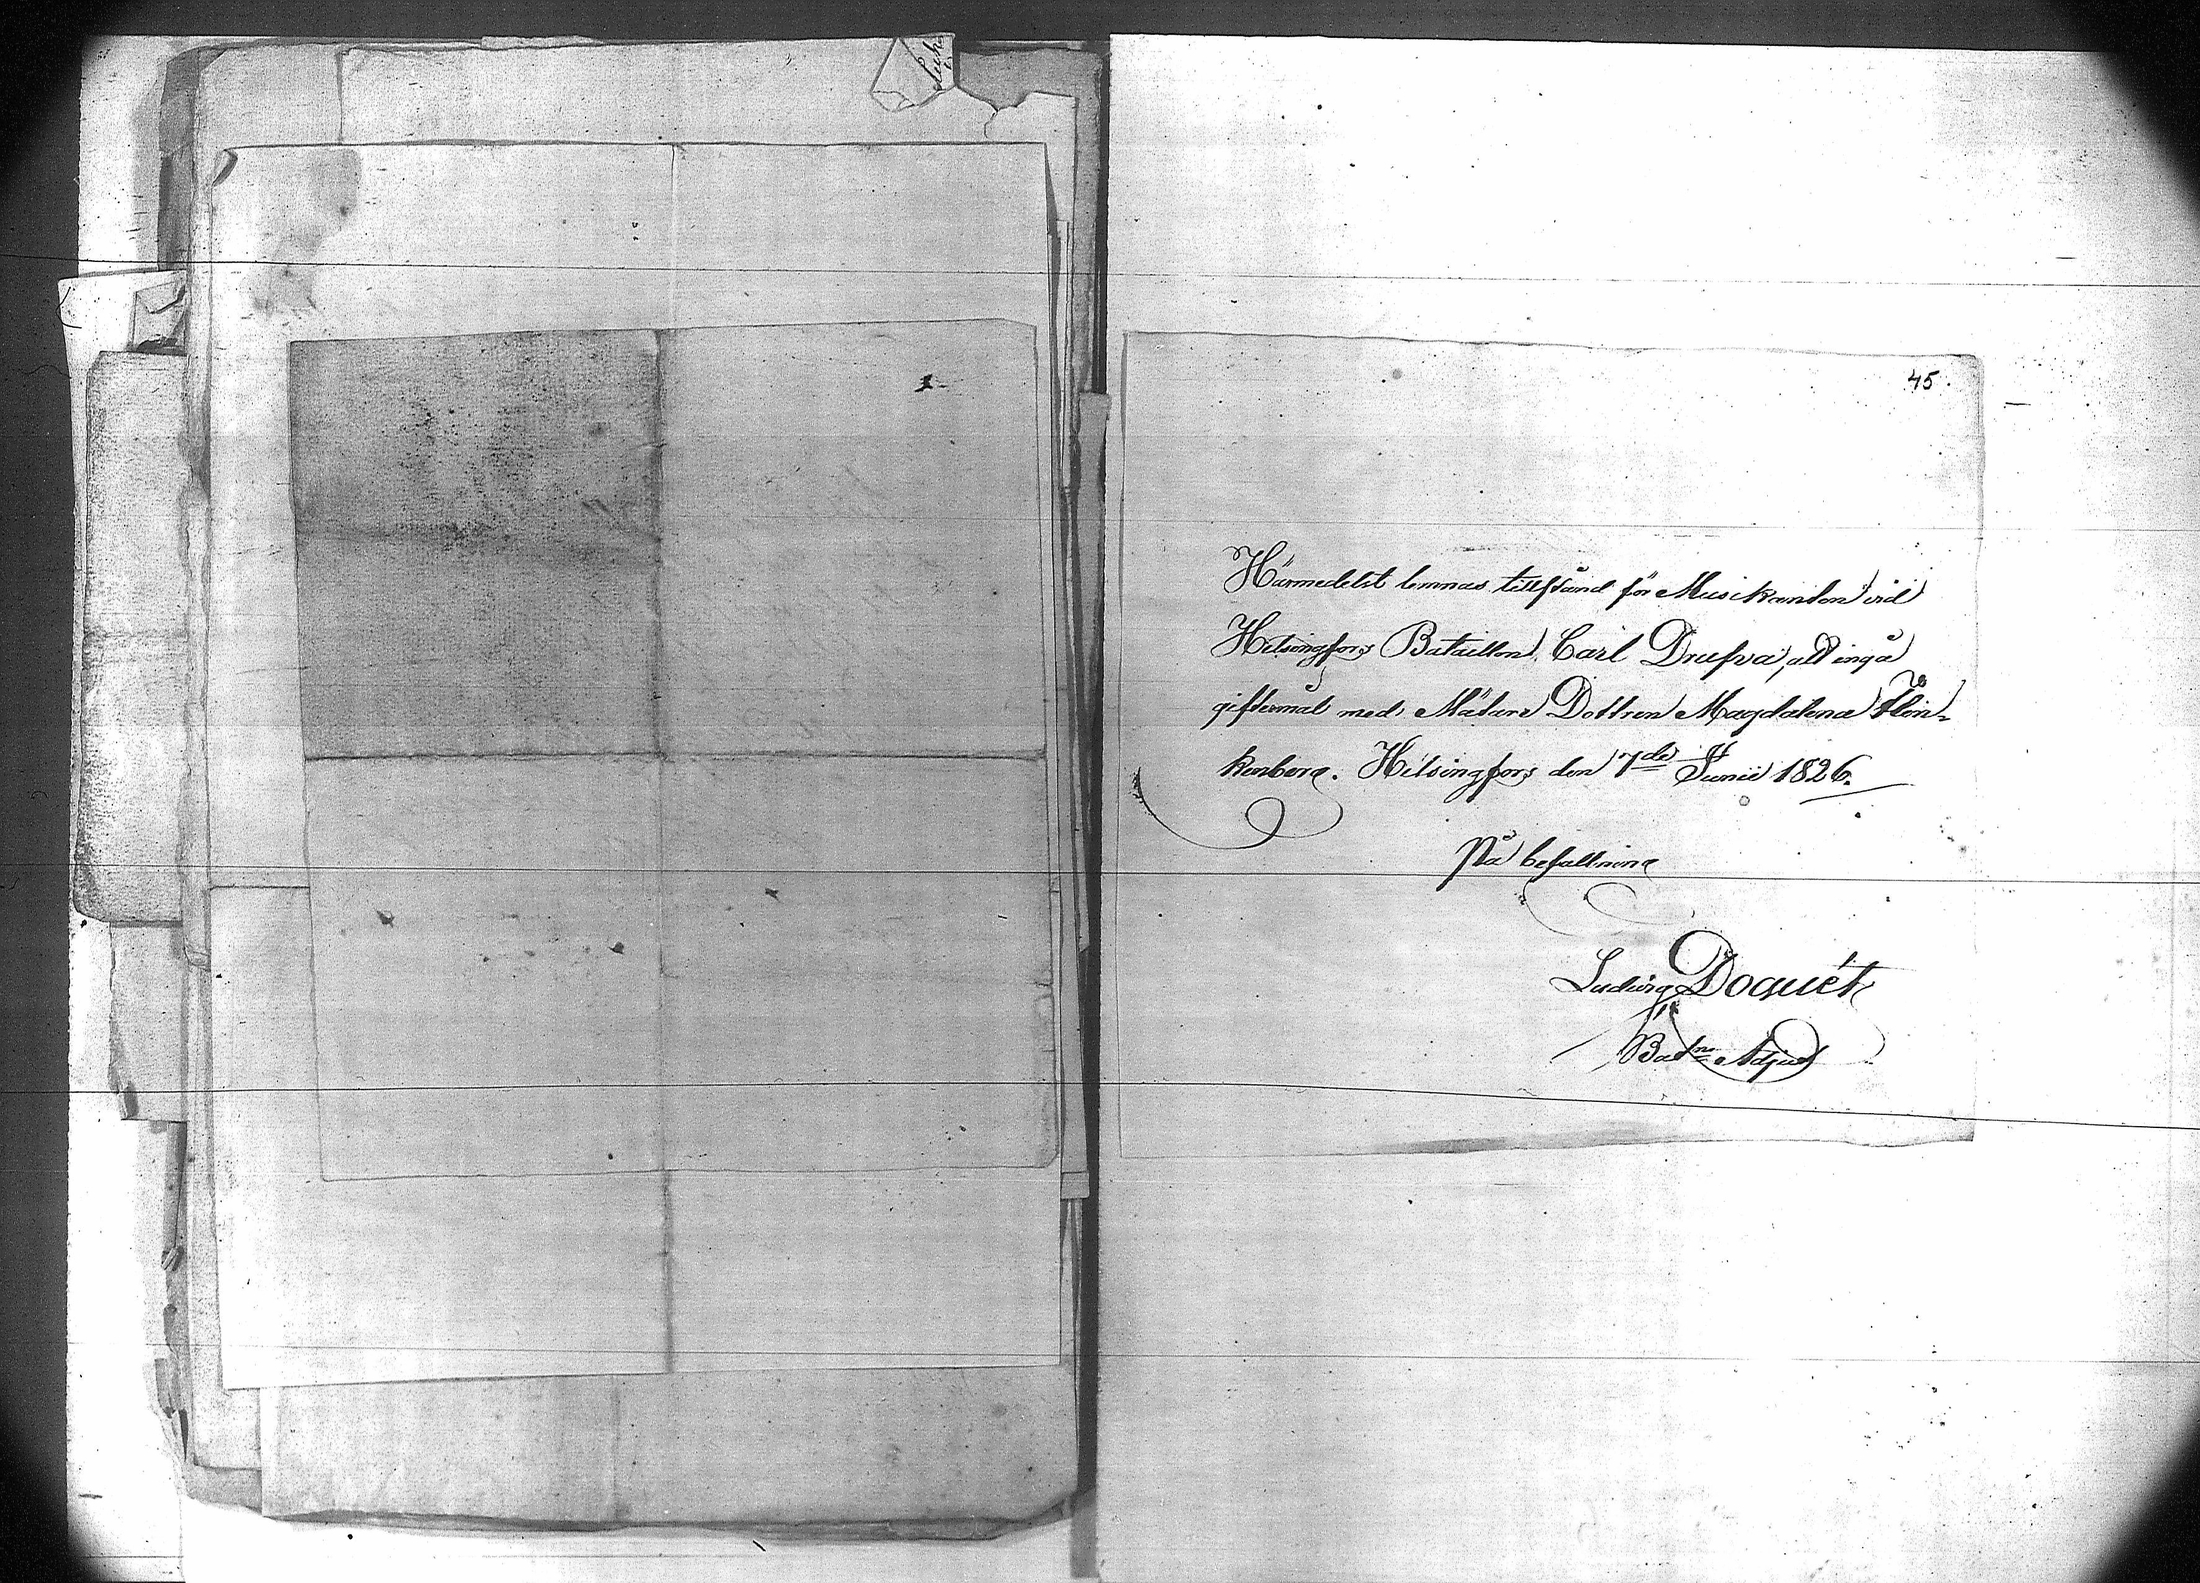 45.
Härmedelst lemnas tillstånd för Musikanten vid
Helsingfors Bataillon, Carl Drufva, att ingå
giftermål med Mätare Dottren Magdalena Flin-
kenberg. Helsingfors den 7de Junii 1826.
På befallning
Ludvig Doquét
Batns Adjut